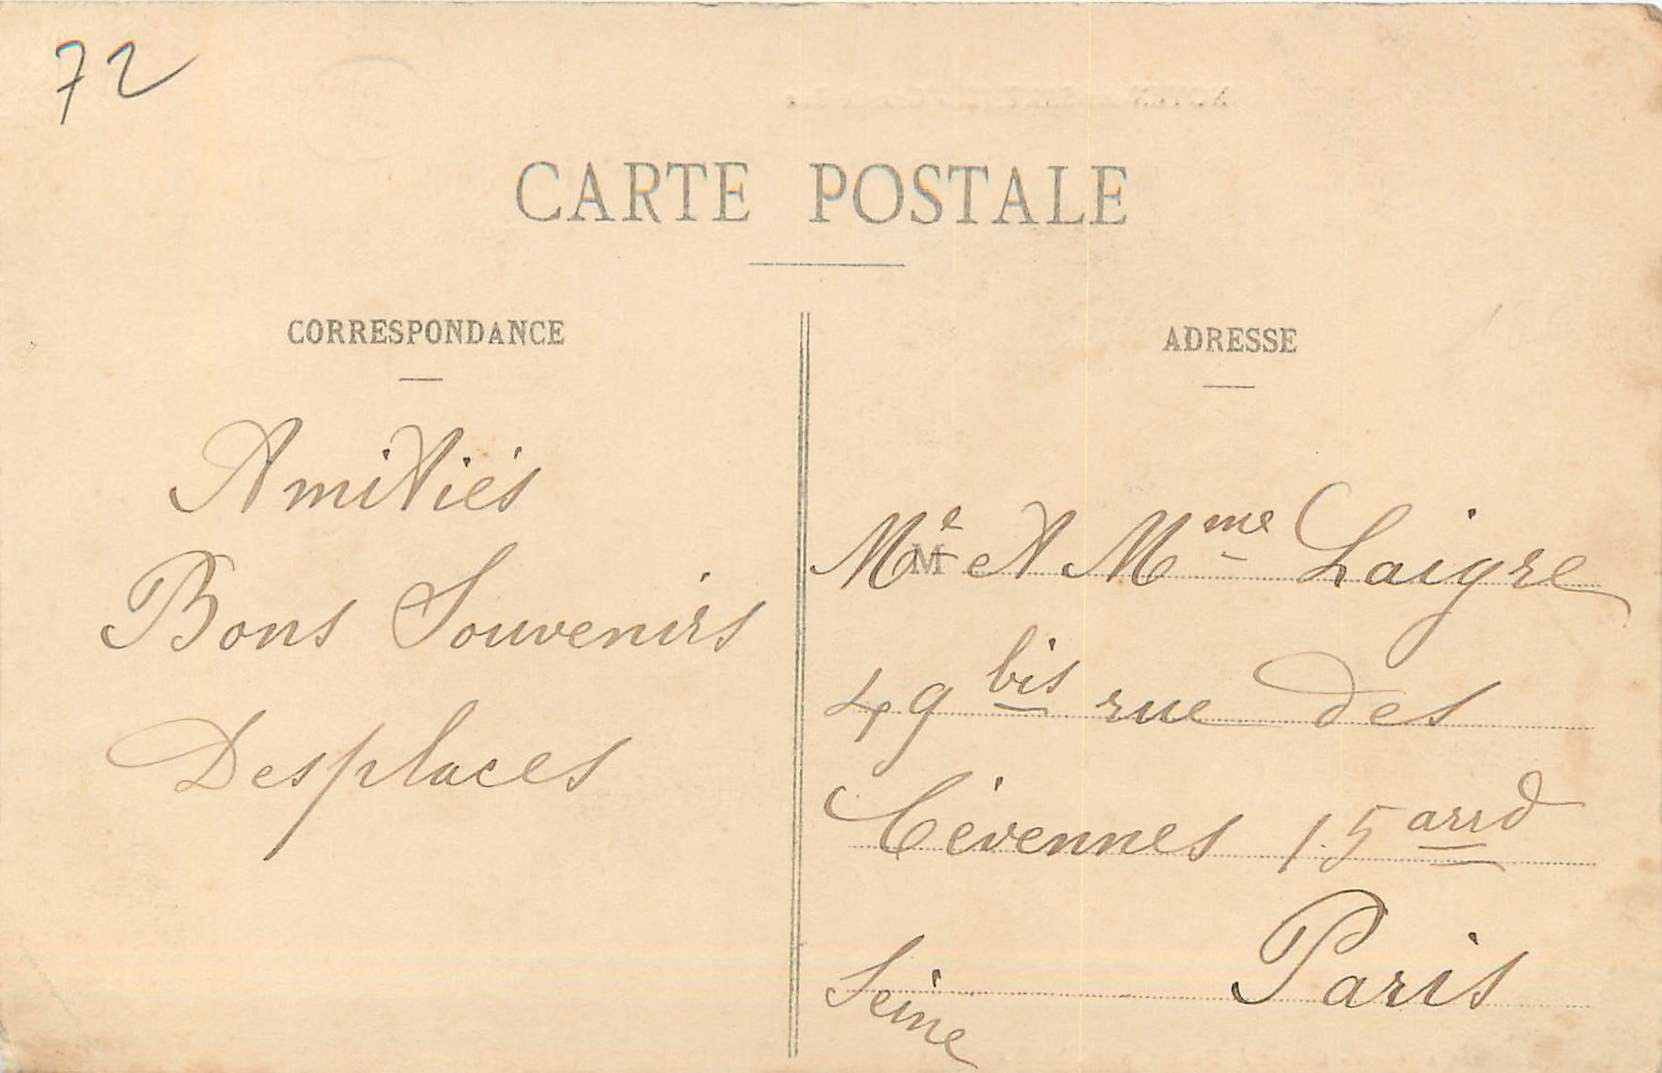 72
CARTE POSTALE
CORRESPONDANCE
Amitiés
Bons Souvenirs
Desplaces
ADRESSE
M
Mr et Mme Laigre
49 bis rue des
Cévennes 15 arrd
Paris
Seine